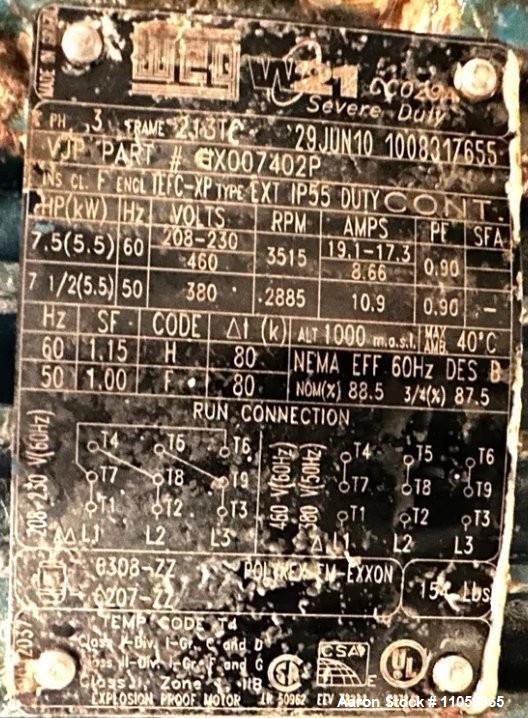 MADE IN BRAZIL
WEG W21 CC029A
Severe Duty
PH 3 FRAME 213TC 29JUN10 1008317655
VJP PART # GX007402P
INS CL. F ENCL TEFC-XP TYPE EXT IP55 DUTY CONT.
HP(kW) Hz VOLTS RPM AMPS PF SFA
7.5(5.5) 60 208-230 3515 19.1-17.3 0.90 —
460 8.66
7 1/2(5.5) 50 380 2885 10.9 0.90 -
Hz SF CODE Δt (k) ALT 1000 m.a.s.l. MAX AMB. 40°C
60 1.15 H 80 NEMA EFF 60Hz DES B
50 1.00 F 80 NOM(%) 88.5 3/4(%) 87.5
RUN CONNECTION
208-230 V(60Hz) T4 T5 T6 460 V(60Hz) 380 V(50Hz) T4 T5 T6
T7 T8 T9 T7 T8 T9
T1 T2 T3 T1 T2 T3
ΔΔ L1 L2 L3 Δ L1 L2 L3
6308-ZZ POLYREX EM-EXXON 154 Lbs
6207-ZZ
TEMP CODE T4
Class I-Div. I-Gr. C and D
Class II-Div. I-Gr. F and G
Class I, Zone IIB
EXPLOSION PROOF MOTOR LR 50962
CSA UL
Aaron Stock #